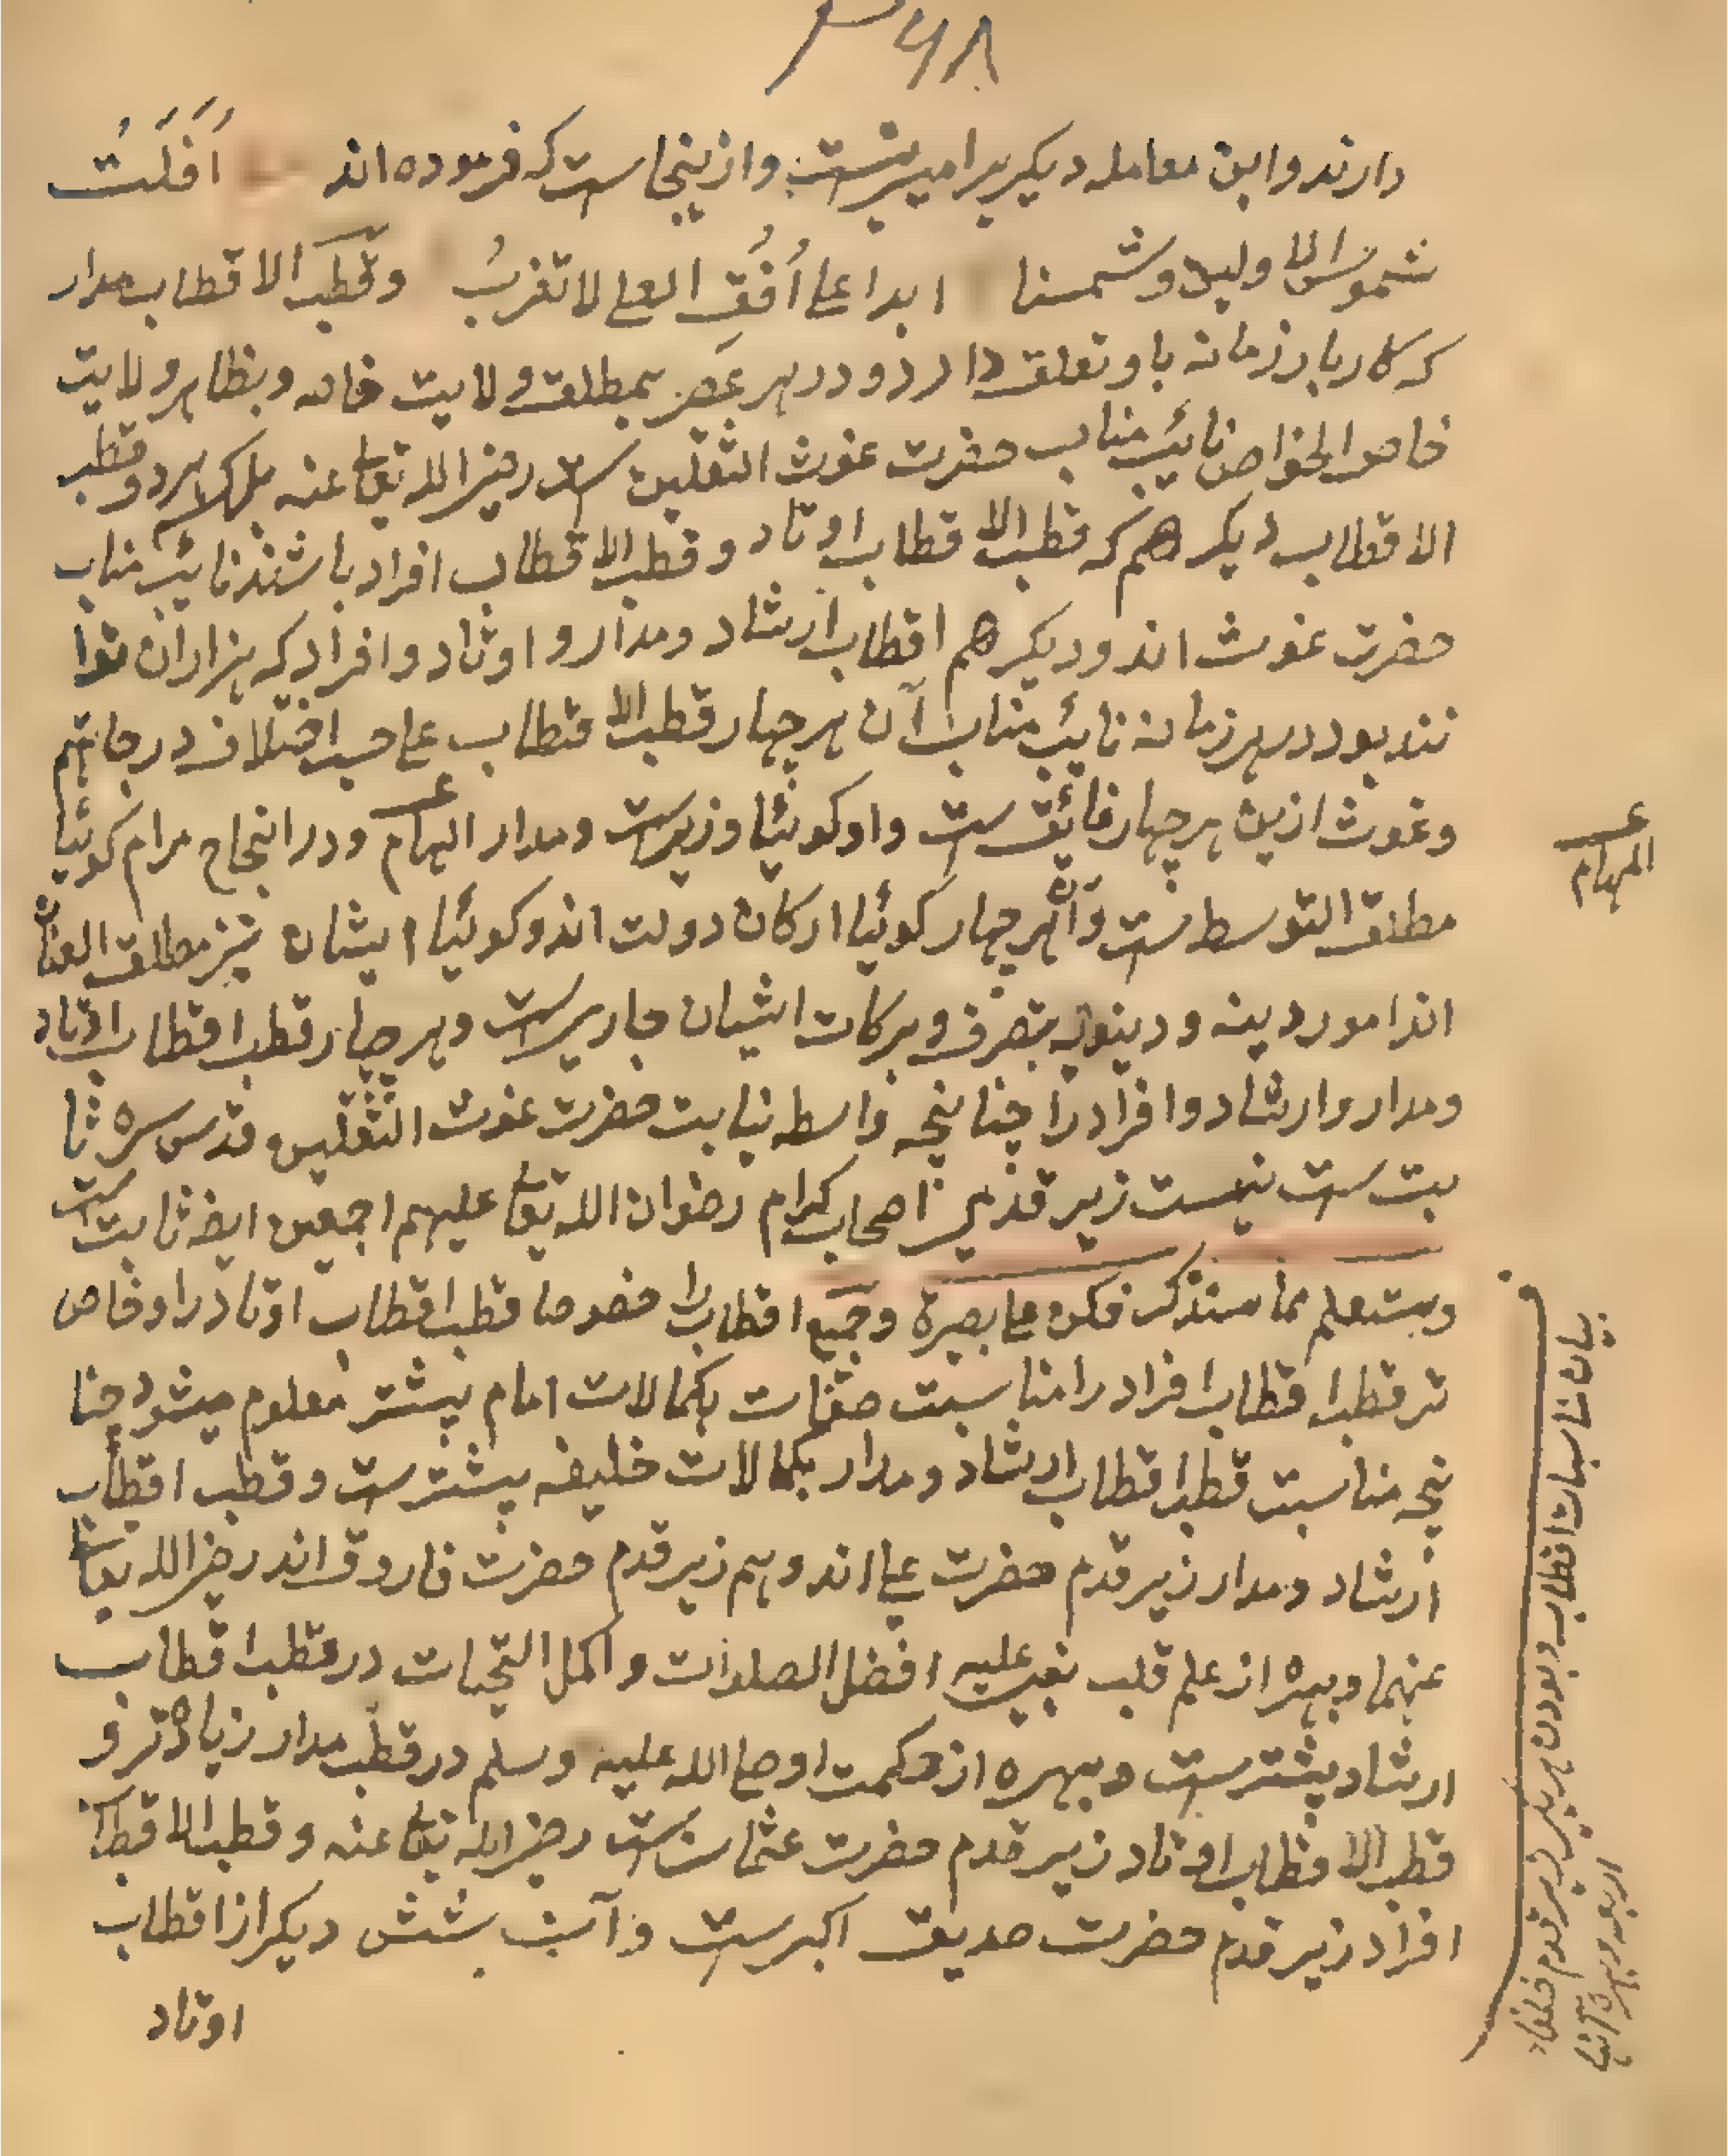 ۳۶۸
دارند و این معامله دیگر برا میرنست و ازینجاست که فرموده اند اَفَلَتْ
شموس الاولین و شمسنا ابدا علی اُفُقِ العلی لا تغربُ وقطب الاقطاب مدار
که کاربار زمانه باو تعلق دارد و در هر عصر بمطلق ولایت خاصه و بظاهر ولایت
خاص الخواص نائب مناب حضرت غوث الثقلین ست رضی الله تعا عنه بل کلا هر دو قطب
الاقطاب دیگر هم که قطب الاقطاب اوتاد و قطب الاقطاب افراد باشند نائب مناب
حضرت غوث اند و دیگر هم اقطاب ارشاد و مدار و اوتاد و افراد که هزاران توا
نند بود در هر زمانه نائب مناب آن هر چهار قطب الاقطاب علی حسب اختلاف درجاتهم
وغوث ازین هر چهار فائق ست و او گوئیا وزیرست و مدار الہام و در انجاح مرام گوئیا
مطلق التوسط ست و آن هر چهار گوئیا ارکان دولت اند و گوئیا ایشان نیز مطلق العنان
اند امور دینیه و دینویه بتصرف و برکات ایشان جاریست و هر چهار قطب اقطاب اوتاد
ومدار و ارشاد و افراد را چنانچه واسطه نیابت حضرت غوث الثقلین قدس سره ثا
بت ست نیست زیر قدمی اصحاب کرام رضوان الله تعا علیهم اجمعین ایضا ثابت ست
وستعلم مما سنذکر فکن علی بصیرة و جمیع اقطاب را خصوصا قطب اقطاب اوتاد را و خاص
تر قطب اقطاب افراد را مناسبت صفات بکمالات امام بیشتر معلوم میشود چنا
نچه مناسبت قطب اقطاب ارشاد و مدار بکمالات خلیفه بیشترست و قطب اقطاب
ارشاد و مدار زیر قدم حضرت علی اند و هم زیر قدم حضرت فاروق اند رضی الله تعا
عنهما و بهره از علم قلب نبی علیه افضل الصلوات و اکمل التحیات در قطب اقطاب
ارشاد بیشترست و بهره از حکمت او صلی الله علیه وسلم در قطب مدار زیاده تر و
قطب الاقطاب اوتاد زیر قدم حضرت عثمان ست رضی الله تعا عنه و قطب الاقطاب
افراد زیر قدم حضرت صدیق اکبرست و آن شش دیگر از اقطاب
اوتاد
عــہ
المہام
بیان مناسبات اقطاب و بودن هر یکی زیر قدم خلفاء
اربعه و بهره آنها